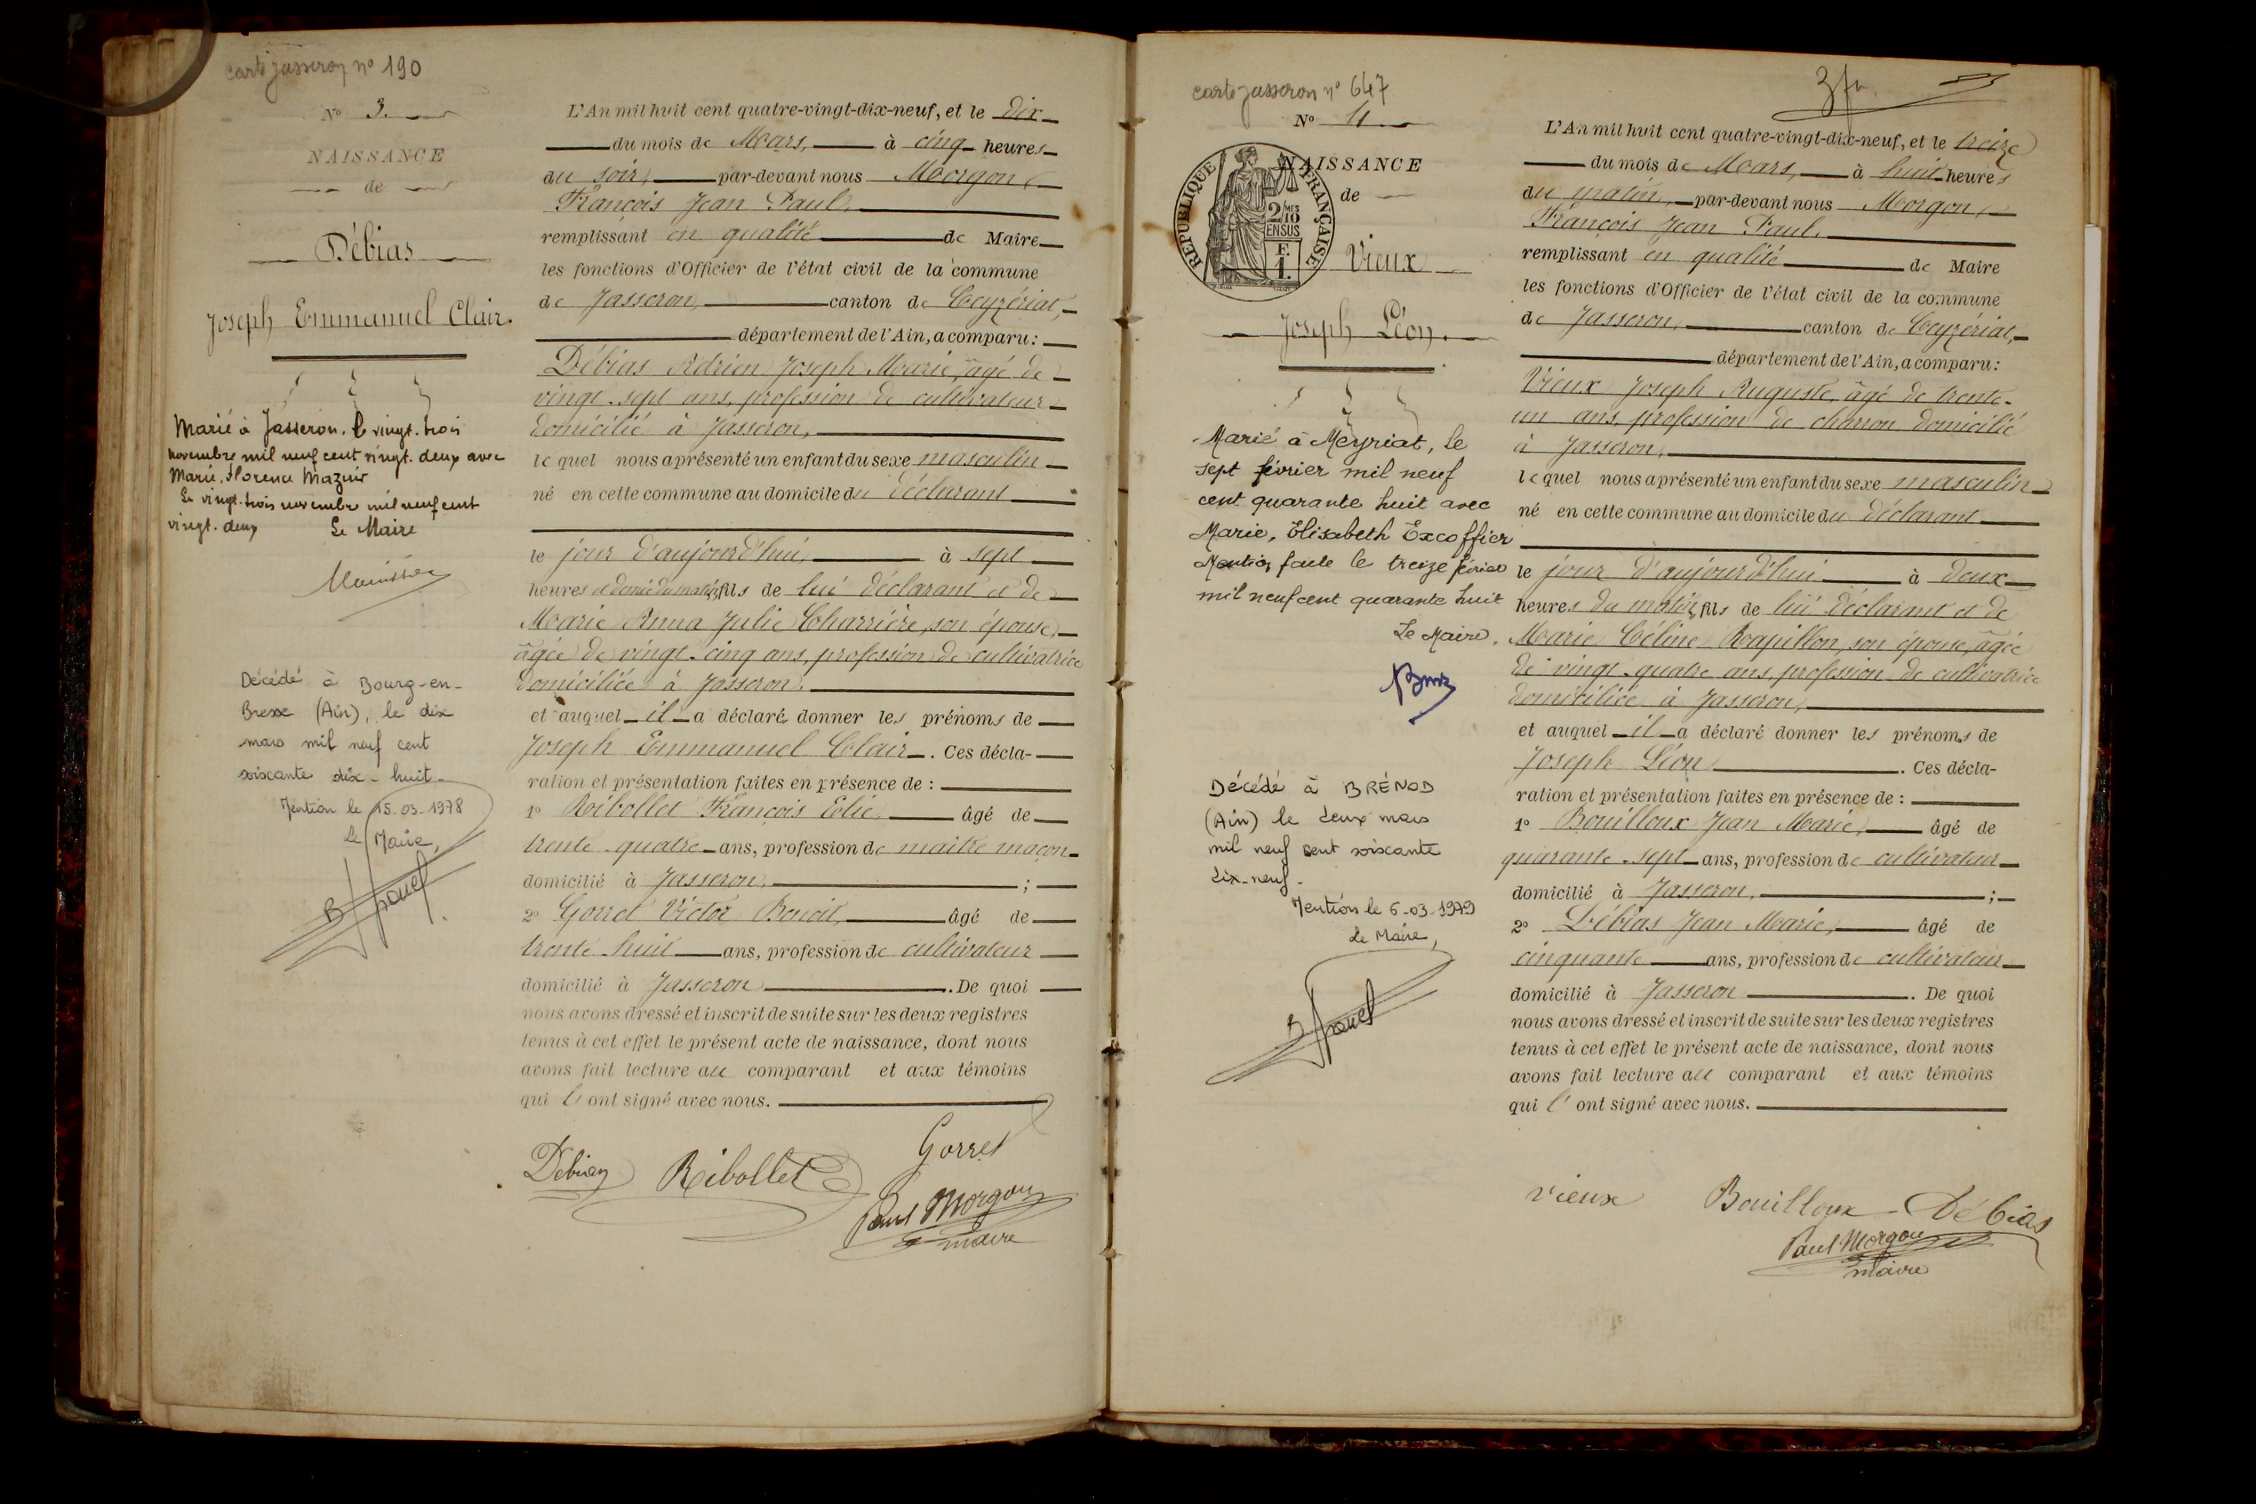 carte Jasseron n° 190
N° 3.
NAISSANCE
de
Débias
Joseph Emmanuel Clair.
Marié à Jasseron, le vingt-trois
novembre mil neuf cent vingt-deux avec
Marie, Florence Mazuir
Le vingt-trois novembre mil neuf cent
vingt-deux Le Maire
Décédé à Bourg-en-
Bresse (Ain), le dix
mars mil neuf cent
soixante dix-huit-
Mention le 15-03-1978
Le Maire,
L'An mil huit cent quatre-vingt-dix-neuf, et le dix
du mois de Mars, à cinq heures
du soir, par-devant nous Morgon,
François Jean Paul,
remplissant en qualité de Maire
les fonctions d'Officier de l'état civil de la commune
de Jasseron, canton de Ceyzériat,
département de l'Ain, a comparu:
Débias Adrien Joseph Marie, âgé de
vingt-sept ans, profession de cultivateur
domicilié à Jasseron,
lequel nous a présenté un enfant du sexe masculin
né en cette commune au domicile du déclarant
le jour d'aujourd'hui, à sept
heures et demie du matin, fils de lui déclarant et de
Marie Anna Julie Charrière, son épouse,
âgée de vingt-cinq ans, profession de cultivatrice
domiciliée à Jasseron,
et auquel il a déclaré donner les prénoms de
Joseph Emmanuel Clair. Ces décla-
ration et présentation faites en présence de :
1° Ribollet François Elie, âgé de
trente-quatre ans, profession de maître maçon
domicilié à Jasseron, ;
2° Gorret Victor Benoit, âgé de
trente huit ans, profession de cultivateur
domicilié à Jasseron. De quoi
nous avons dressé et inscrit de suite sur les deux registres
tenus à cet effet le présent acte de naissance, dont nous
avons fait lecture au comparant et aux témoins
qui l'ont signé avec nous.
Gorret
Débias Ribollet
Paul Morgon
maire
carte Jasseron n° 647
N° 4
NAISSANCE
de
REPUBLIQUE FRANÇAISE
2/10 MES
EN SUS
F.
1.
Vieux
Joseph Léon.
Marié à Meyriat, le
sept février mil neuf
cent quarante huit avec
Marie, Elisabeth Excoffier
Mention faite le treize février
mil neuf cent quarante huit
Le Maire,
Décédé à BRÉNOD
(Ain) le deux mars
mil neuf cent soixante
dix-neuf-
Mention le 6-03-1979
Le Maire,
L'An mil huit cent quatre-vingt-dix-neuf, et le treize
du mois de Mars, à huit heures
du matin, par-devant nous Morgon,
François Jean Paul,
remplissant en qualité de Maire
les fonctions d'Officier de l'état civil de la commune
de Jasseron, canton de Ceyzériat,
département de l'Ain, a comparu:
Vieux Joseph Auguste, âgé de trente-
un ans, profession de charron domicilié
à Jasseron,
lequel nous a présenté un enfant du sexe masculin
né en cette commune au domicile du déclarant
le jour d'aujourd'hui à deux
heures du matin, fils de lui déclarant et de
Marie Céline Rapillon, son épouse, âgée
de vingt-quatre ans, profession de cultivatrice
domiciliée à Jasseron,
et auquel il a déclaré donner les prénoms de
Joseph Léon. Ces décla-
ration et présentation faites en présence de :
1° Bouilloux Jean Marie, âgé de
quarante-sept ans, profession de cultivateur
domicilié à Jasseron, ;
2° Débias Jean Marie, âgé de
cinquante ans, profession de cultivateur
domicilié à Jasseron. De quoi
nous avons dressé et inscrit de suite sur les deux registres
tenus à cet effet le présent acte de naissance, dont nous
avons fait lecture au comparant et aux témoins
qui l'ont signé avec nous.
vieux Bouilloux Débias
Paul Morgon
maire